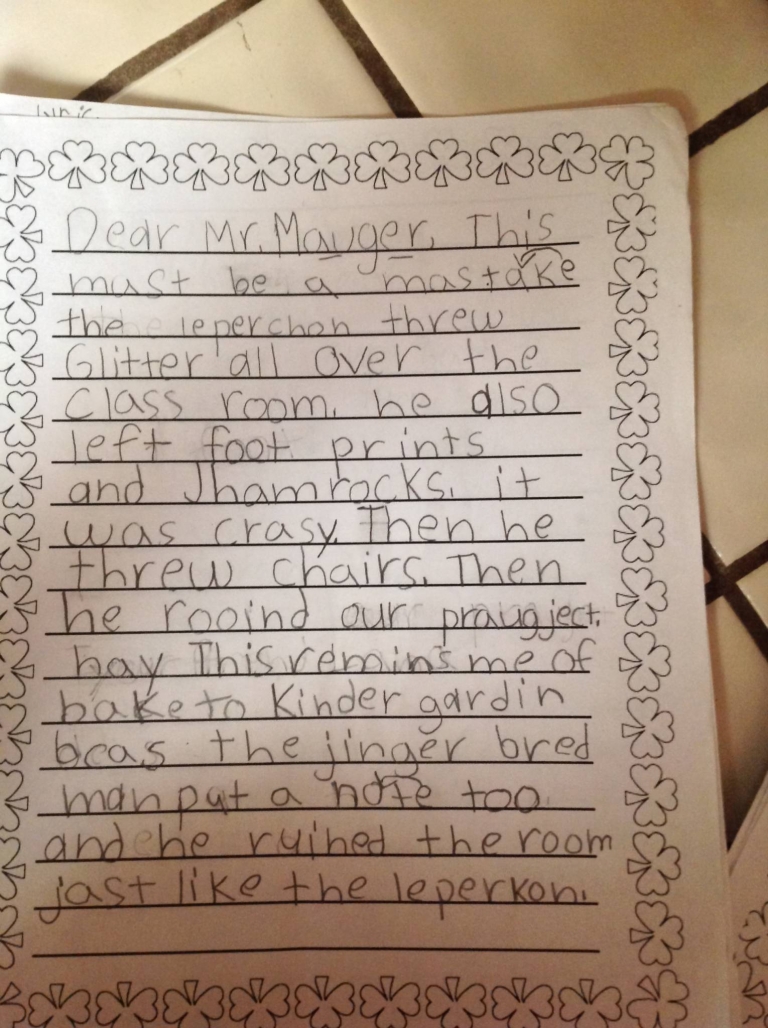 Dear Mr. Mauger, This
must be a mastake
the leperchon threw
Glitter all over the
class room. he also
left foot prints
and Jhamrocks. it
was crasy. Then he
threw chairs. Then
he rooind our praugject.
hay This remins me of
bake to Kinder gardin
bcas the jinger bred
man put a note too.
and he ruined the room
jast like the leperkon.